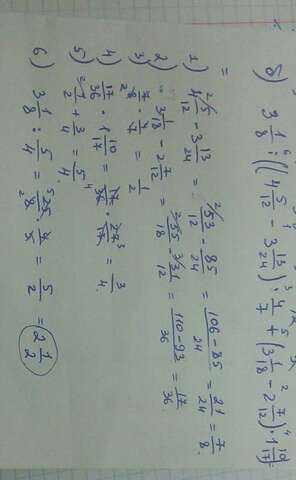 б) 3 1/8 : ((4 5/12 − 3 13/24) · 4/7 + (3 1/18 − 2 7/12) · 1 10/17) =
1) 4 5/12 − 3 13/24 = 53/12 − 85/24 = 106−85/24 = 21/24 = 7/8.
2) 3 1/18 − 2 7/12 = 55/18 − 31/12 = 110−93/36 = 17/36.
3) 7/8 · 4/7 = 1/2
4) 17/36 · 1 10/17 = 17/36 · 27/17 = 3/4.
5) 1/2 + 3/4 = 5/4.
6) 3 1/8 : 5/4 = 25/8 · 4/5 = 5/2 = 2 1/2